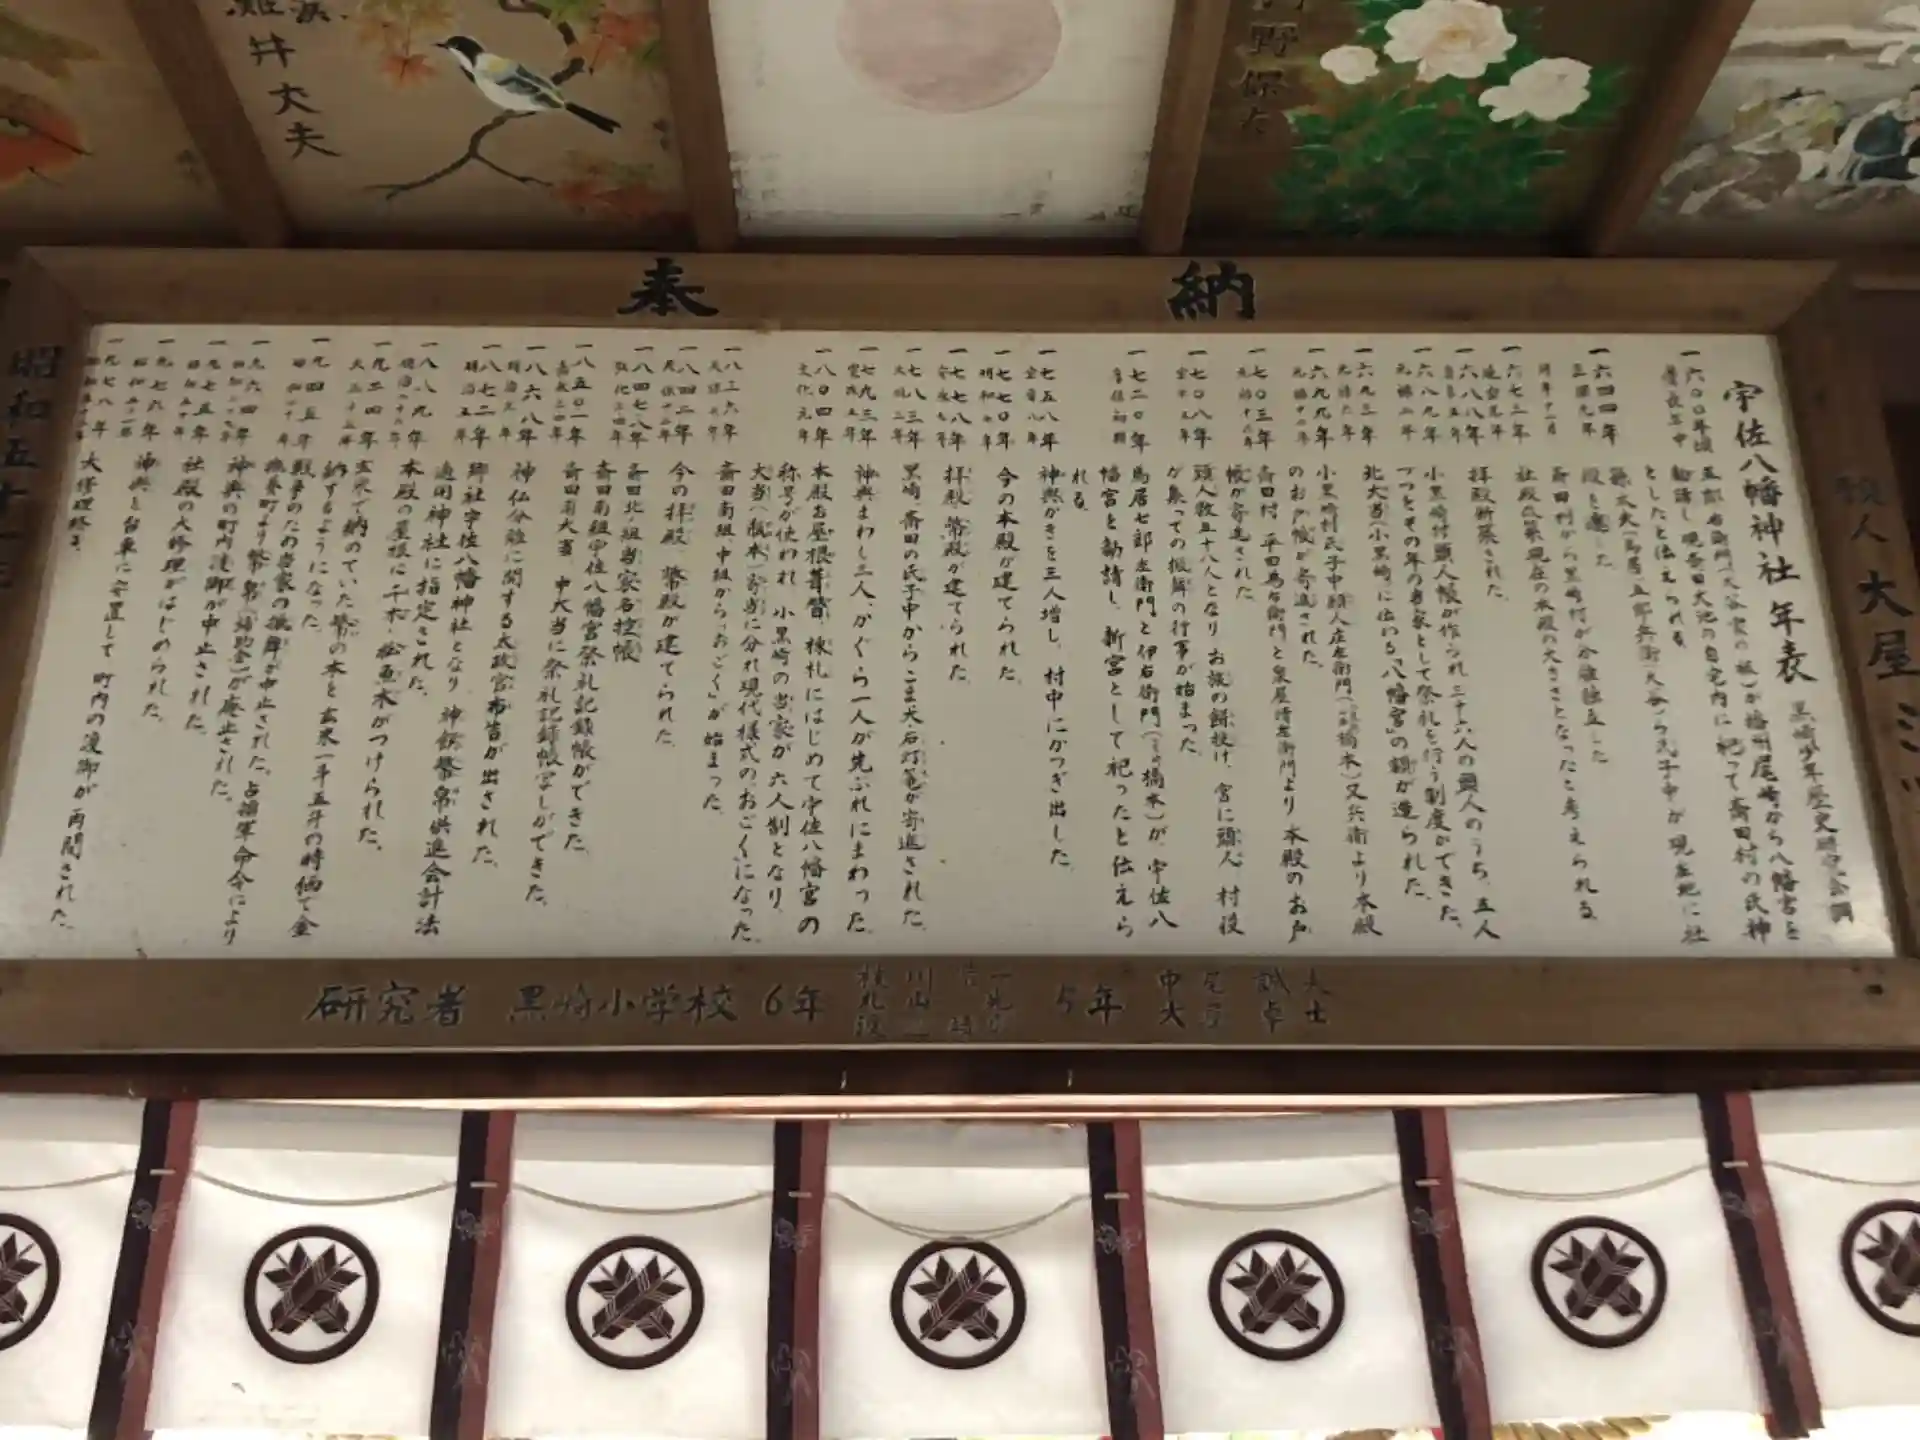 奉 納
宇佐八幡神社年表 黒崎少年歴史研究会調
一六〇〇年頃
慶長年中
五郎右衛門(大谷家の祖)が播州尾崎から八幡宮を
勧請し現斎田大池の自宅内に祀って斎田村の氏神
としたと伝えられる
一六四四年
藤本大(鳥居)五郎兵衛(大谷)ら氏子中が現在地に社
殿を建てた
同年十二月
斎田村から黒崎村が分離独立した
社殿改築現在の本殿の大きさとなったと考えられる
一六七三年
延宝元年
拝殿新築された
一六八八年
小黒崎村頭人帳が作られ三十六人の頭人のうち、五人
づつとその年の当家として祭礼を行う制度ができた
一六八九年
元禄二年
北大当(小黒崎)に伝わる「八幡宮」の額が造られた
一六九三年
元禄六年
小黒崎村氏子中頭人庄左衛門(橋本)又兵衛より本殿
のお戸帳が寄進された
一六九九年
元禄十二年
斎田村、平田馬右衛門と泉屋清左衛門より本殿のお戸
帳が寄進された
一七〇三年
元禄十六年
頭人数五十八人となり お旅の餅投げ、宮に頭人 村役
が集っての振舞の行事が始まった
一七〇八年
宝永五年
鳥居七郎左衛門と伊右衛門(その橋本)が、宇佐八
幡宮を勧請し、新宮として祀ったと伝えら
れる
一七二〇年
享保初期
一七五八年
宝暦八年
神輿がきを三人増し、村中にかつぎ出した
一七七〇年
明和七年
今の本殿が建てられた
一七七八年
安永七年
拝殿 幣殿が建てられた
一七八三年
天明三年
黒崎 斎田の氏子中からこま犬石灯篭が寄進された
一七九三年
寛政五年
神輿まわし三人、かぐら一人が先ぶれにまわった
一八〇四年
文化元年
本殿お屋根葺替 棟札にはじめて宇佐八幡宮の
称号が使われ 小黒崎の当家が六人制となり、
大当(橋本)寄当に分れ現代様式のおごくになった
一八三六年
天保七年
斎田南組、中組から「おごく」が始まった
一八四二年
天保十三年
今の拝殿、幣殿が建てられた
一八四七〜八年
弘化三四年
斎田北ノ組当家名控帳
一八五〇〜一年
嘉永三四年
斎田南組宇佐八幡宮祭礼記録帳ができた
斎田南大当、中大当に祭礼記録帳写しができた
一八六八年
明治元年
神仏分離に関する太政官布告が出された
一八七二年
明治五年
郷社宇佐八幡神社となり 神饌幣帛供進会計法
適用神社に指定された
一八八九年
明治二十二年
本殿の屋根に千木・松魚木がつけられた
一九二四年
大正十三年
玄米で納めていた幣の本を玄米一斗五升の時価で金
納するようになった
一九四五年
昭和二十年
戦争のため当家の振舞が中止された、占領軍命令により
撫養町より幣帛(補助金)が廃止された
一九六四年
昭和三十九年
神輿の町内渡御が中止された
一九七五年
昭和五十年
社殿の大修理がはじめられた
一九七六年
昭和五十一年
神輿を台車に安置して町内の渡御が再開された
一九七八年
昭和五十三年
大修理終る
研究者 黒崎小学校 6年 5年
井大夫
野保
昭和五十
大屋